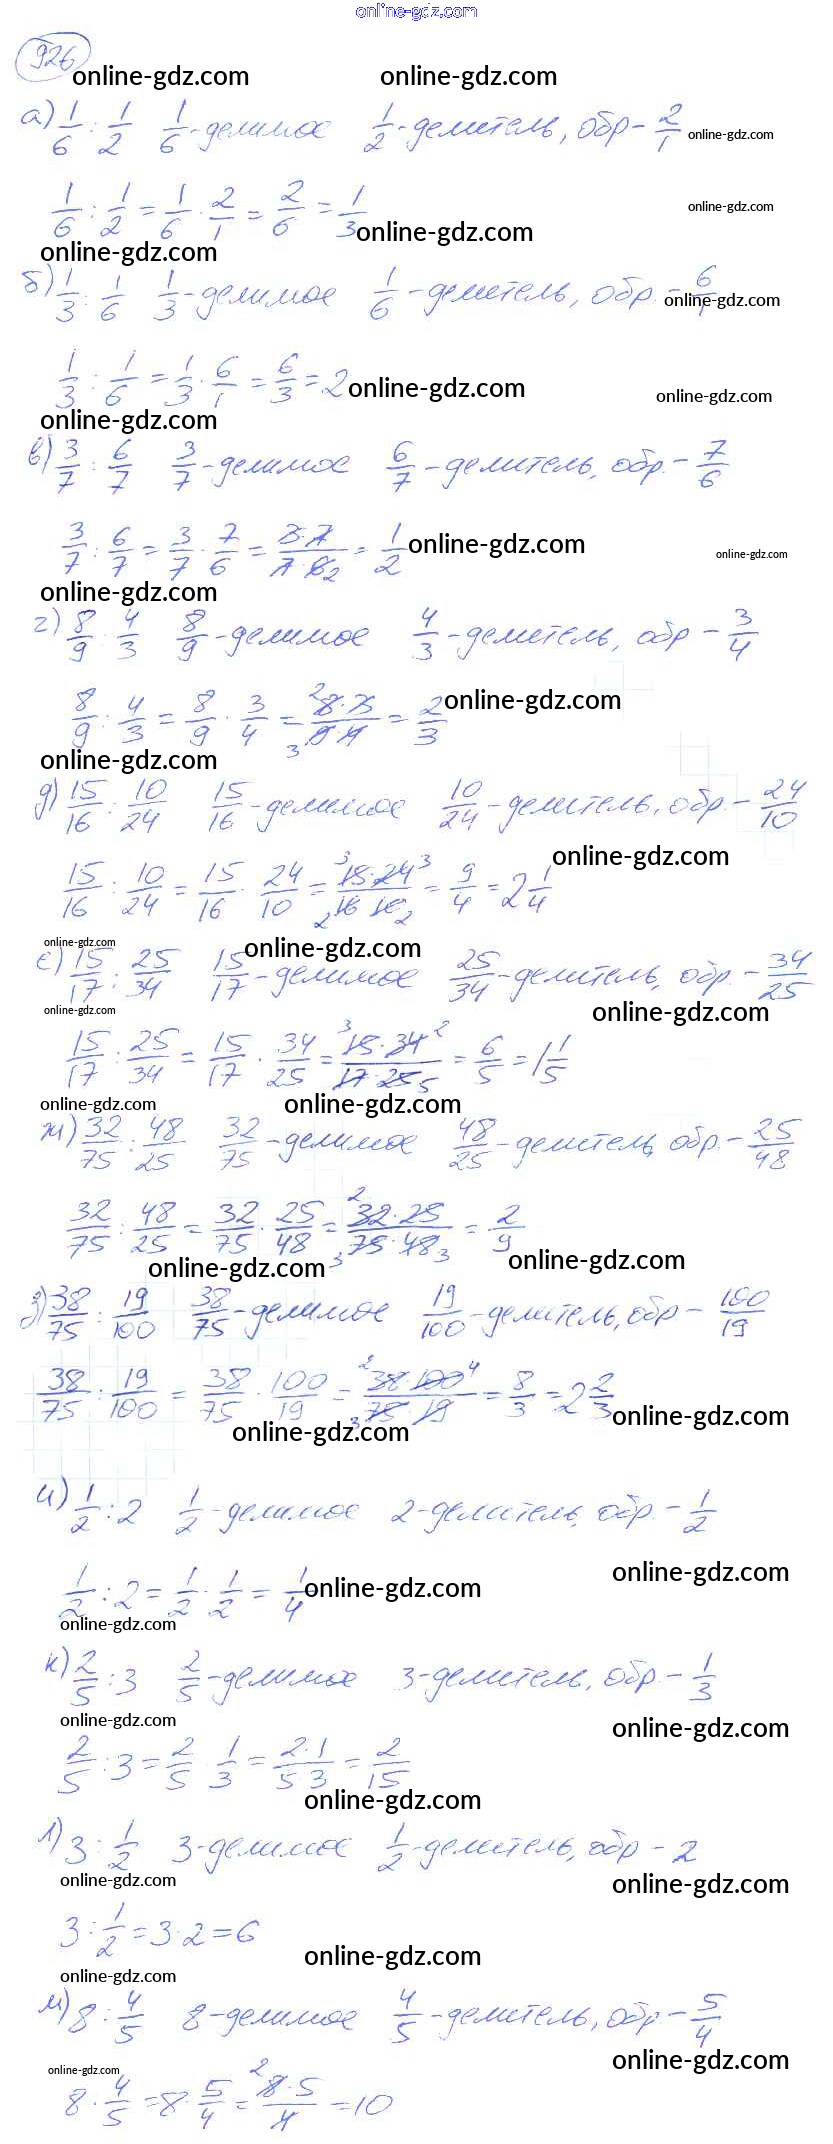 online-gdz.com
926
online-gdz.com online-gdz.com
а) 1/6 : 1/2 1/6 - делимое 1/2 - делитель, обр - 2/1 online-gdz.com
1/6 : 1/2 = 1/6 · 2/1 = 2/6 = 1/3 online-gdz.com
online-gdz.com online-gdz.com
б) 1/3 : 1/6 1/3 - делимое 1/6 - делитель, обр. - 6/1 online-gdz.com
1/3 : 1/6 = 1/3 · 6/1 = 6/3 = 2 online-gdz.com online-gdz.com
online-gdz.com
в) 3/7 : 6/7 3/7 - делимое 6/7 - делитель, обр. - 7/6
3/7 : 6/7 = 3/7 · 7/6 = 3·7/7·6 2 = 1/2 online-gdz.com online-gdz.com
online-gdz.com
г) 8/9 : 4/3 8/9 - делимое 4/3 - делитель, обр - 3/4
8/9 : 4/3 = 8/9 · 3/4 = 2 8·3/3 9·4 = 2/3 online-gdz.com
online-gdz.com
д) 15/16 : 10/24 15/16 - делимое 10/24 - делитель, обр. - 24/10
15/16 : 10/24 = 15/16 · 24/10 = 3 15·24 3/2 16 10 2 = 9/4 = 2 1/4 online-gdz.com
online-gdz.com online-gdz.com
е) 15/17 : 25/34 15/17 - делимое 25/34 - делитель, обр. - 34/25
online-gdz.com online-gdz.com
15/17 : 25/34 = 15/17 · 34/25 = 3 15·34 2/17·25 5 = 6/5 = 1 1/5
online-gdz.com online-gdz.com
ж) 32/75 : 48/25 32/75 - делимое 48/25 - делитель, обр. - 25/48
32/75 : 48/25 = 32/75 · 25/48 = 2 32·25/3 75·48 3 = 2/9
online-gdz.com online-gdz.com
з) 38/75 : 19/100 38/75 - делимое 19/100 - делитель, обр - 100/19
38/75 : 19/100 = 38/75 · 100/19 = 2 38·100 4/3 75·19 = 8/3 = 2 2/3 online-gdz.com
online-gdz.com
и) 1/2 : 2 1/2 - делимое 2 - делитель, обр. - 1/2
1/2 : 2 = 1/2 · 1/2 = 1/4 online-gdz.com online-gdz.com
online-gdz.com
к) 2/5 : 3 2/5 - делимое 3 - делитель, обр. - 1/3
online-gdz.com online-gdz.com
2/5 : 3 = 2/5 · 1/3 = 2·1/5·3 = 2/15
online-gdz.com
л) 3 : 1/2 3 - делимое 1/2 - делитель, обр - 2
online-gdz.com online-gdz.com
3 : 1/2 = 3·2 = 6
online-gdz.com
online-gdz.com
м) 8 : 4/5 8 - делимое 4/5 - делитель, обр. - 5/4
online-gdz.com online-gdz.com
8 · 4/5 = 8 · 5/4 = 2 8·5/4 = 10